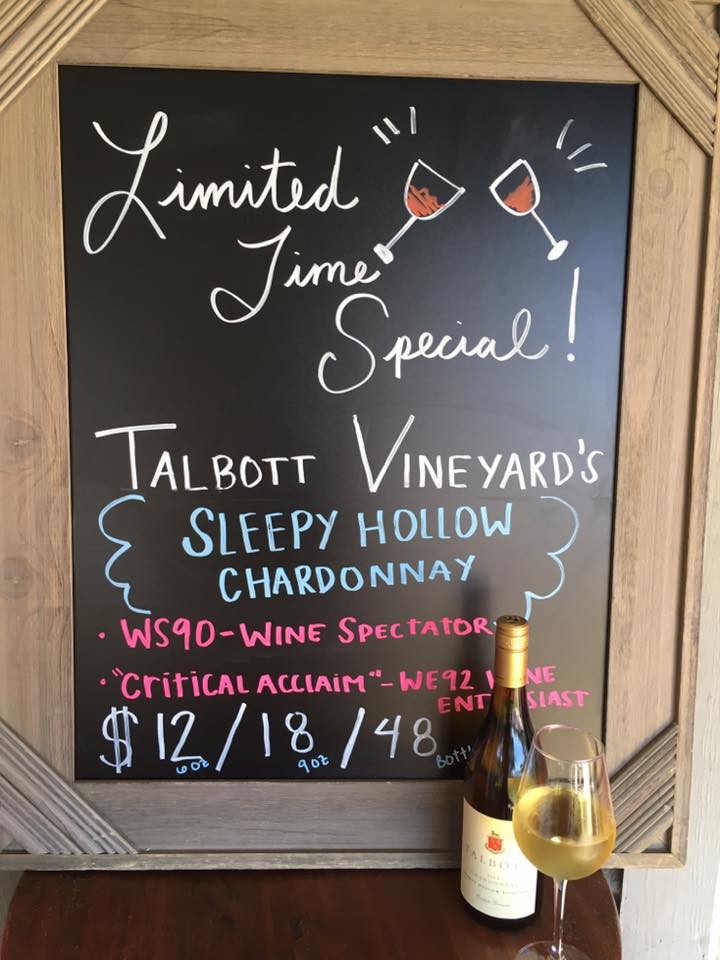 Limited
Time
Special!
TALBOTT VINEYARD'S
SLEEPY HOLLOW
CHARDONNAY
• WS90-WINE SPECTATOR
• "CRITICAL ACCLAIM"-WE92 W NE
ENT SIAST
$12/18/48
6oz 9oz Bott'
TALBOT